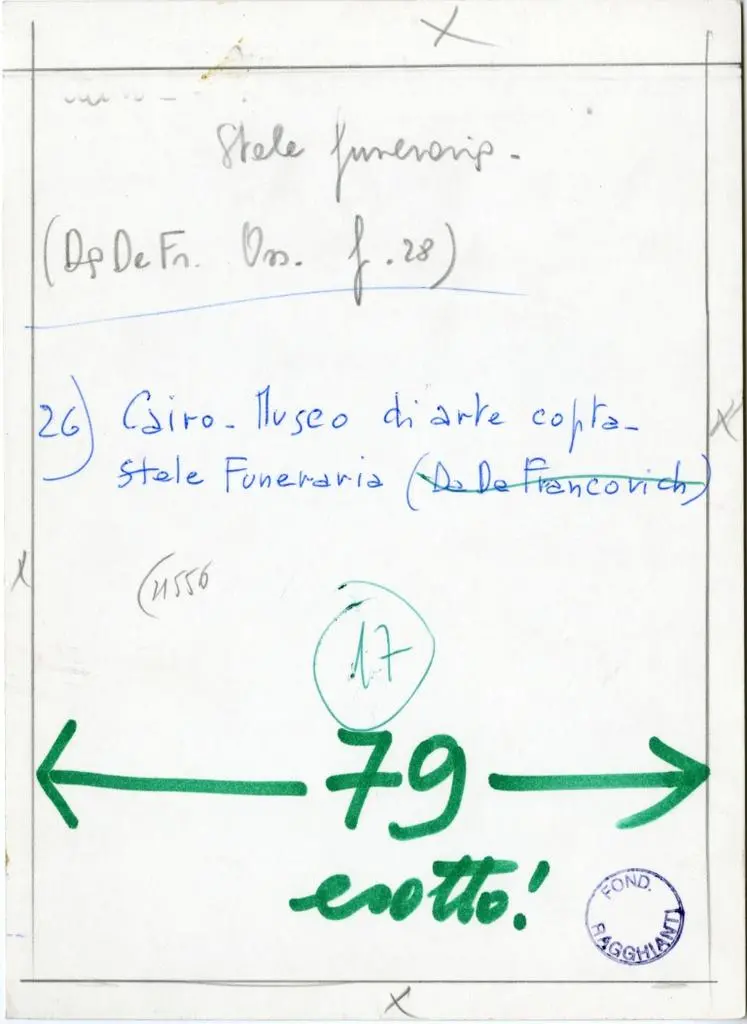 Stele funeraria -
(Da De Fr. Oss. f. 28)
26) Cairo - Museo di arte copta -
Stele Funeraria (Da De Francovich)
17
79
esatto!
FOND.
RAGGHIANTI